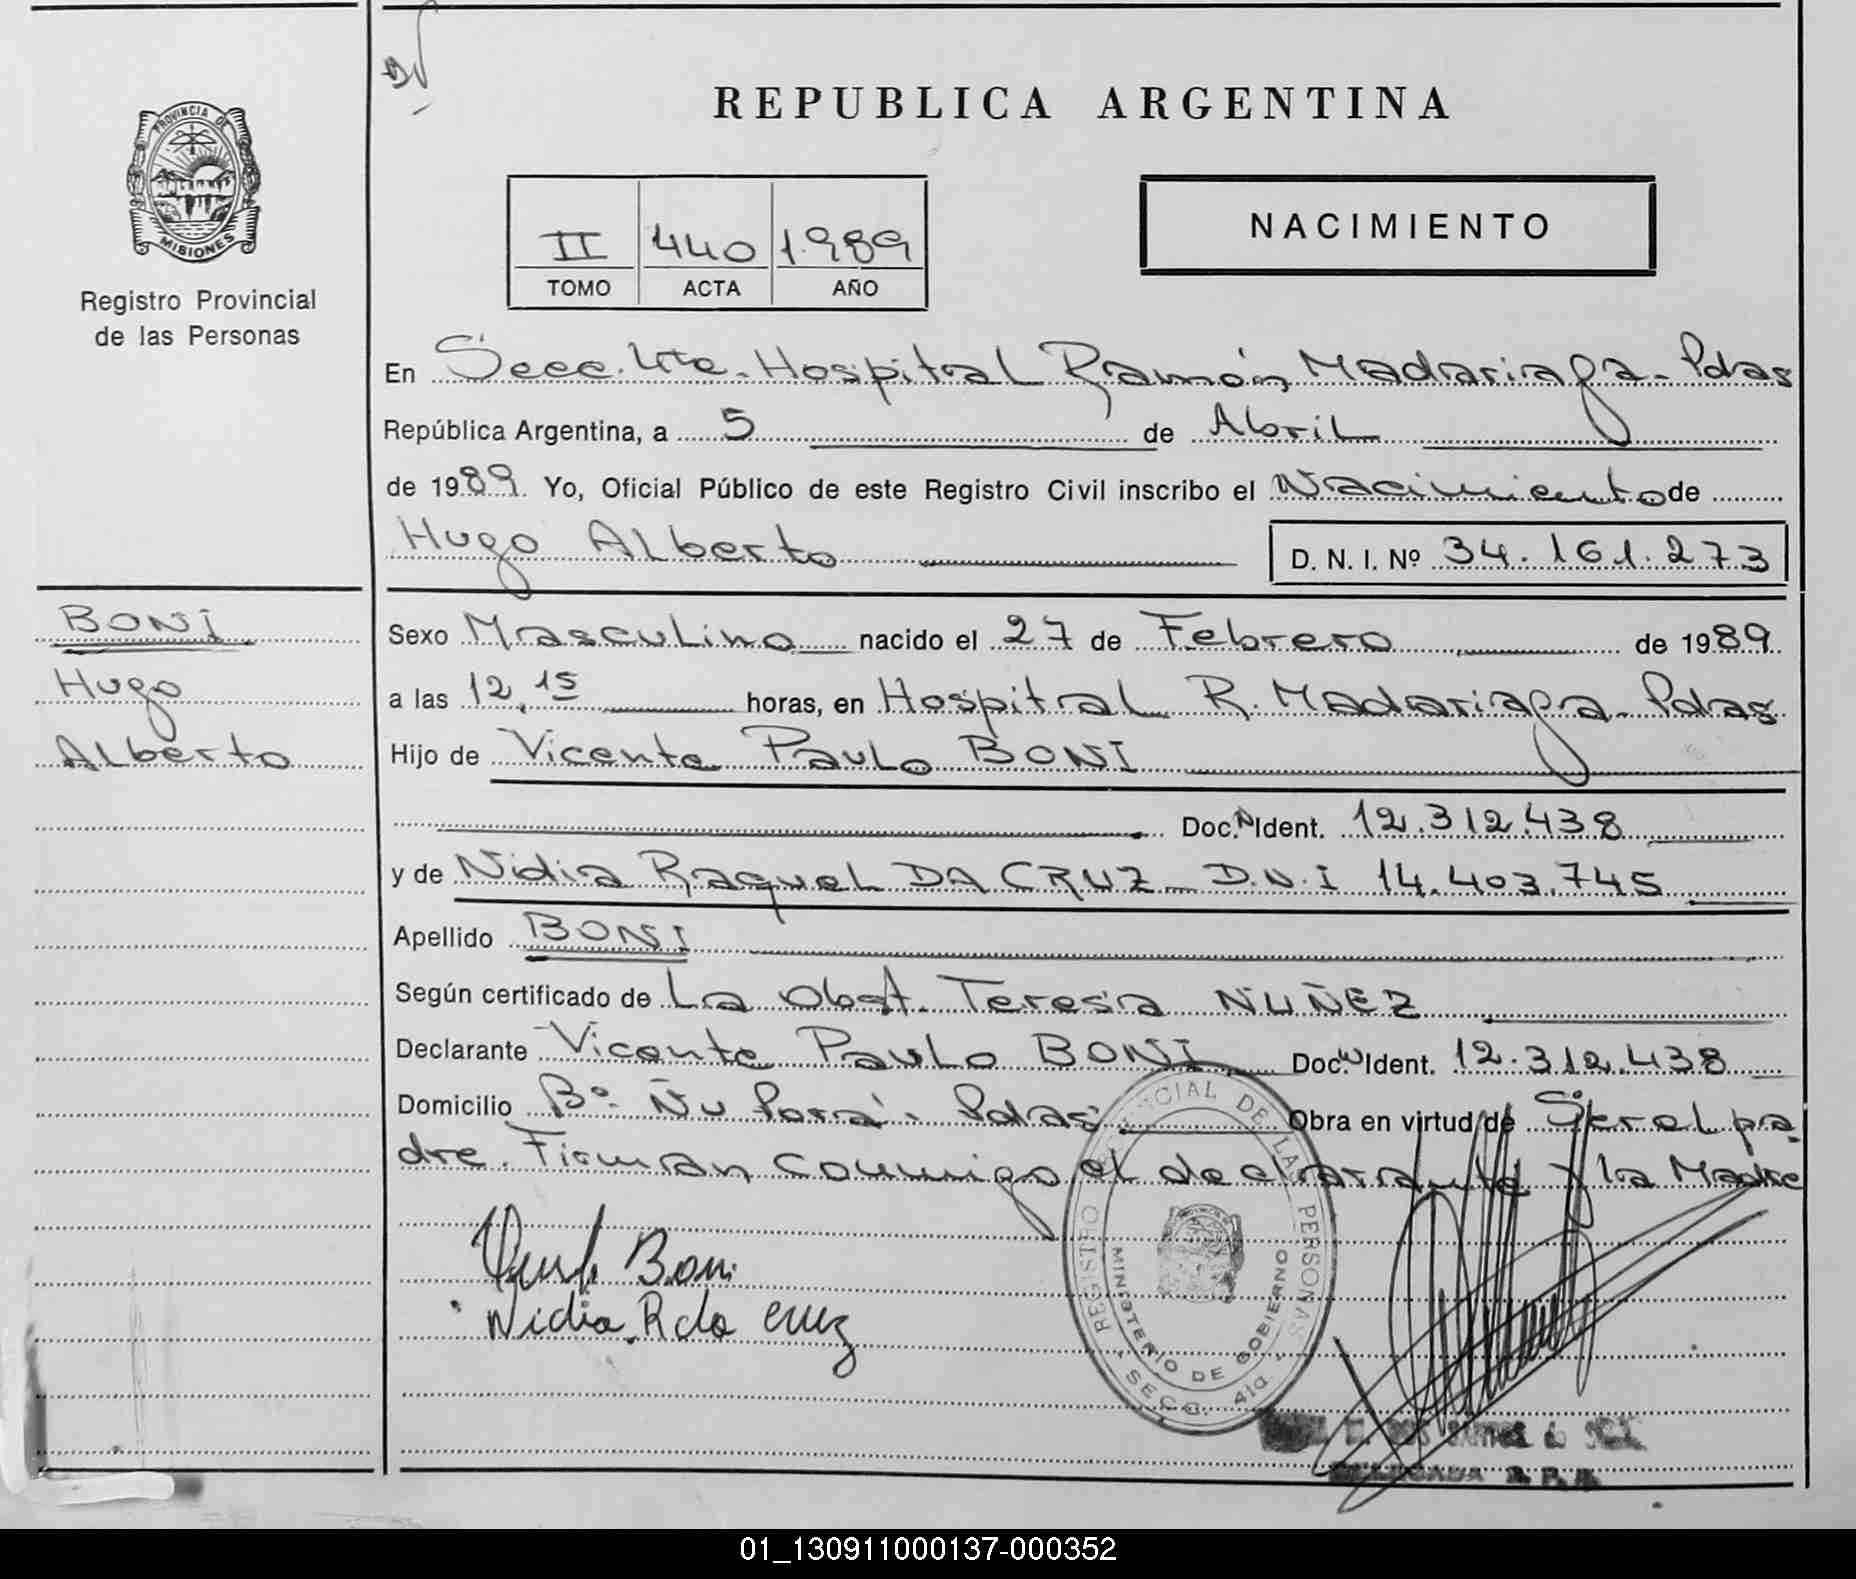 PROVINCIA DE
MISIONES
Registro Provincial
de las Personas
REPUBLICA ARGENTINA
II 440 1.989
TOMO ACTA AÑO
NACIMIENTO
En Secc. 4ta. Hospital Ramón Madariaga - Pdas
República Argentina, a 5 de Abril
de 1989. Yo, Oficial Público de este Registro Civil inscribo el Nacimiento de
Hugo Alberto D. N. I. Nº 34.161.273
BONI
Hugo
Alberto
Sexo Masculino nacido el 27 de Febrero de 1989
a las 12,15 horas, en Hospital R. Madariaga - Pdas
Hijo de Vicente Paulo BONI
Doc. N Ident. 12.312.438
y de Nidia Raquel DA CRUZ - D.N.I 14.403.745
Apellido BONI
Según certificado de La Obst. Teresa NUÑEZ
Declarante Vicente Paulo BONI Doc. N Ident. 12.312.438
Domicilio Bº Ñu Porá - Pdas Obra en virtud de Ser el pa-
dre. Firman conmigo el declarante y la Madre
Boni
Nidia R da Cruz
REGISTRO PROVINCIAL DE LAS PERSONAS
MINISTERIO DE GOBIERNO
SECC. 4ta
DELEGADA R. P. P.
01_130911000137-000352